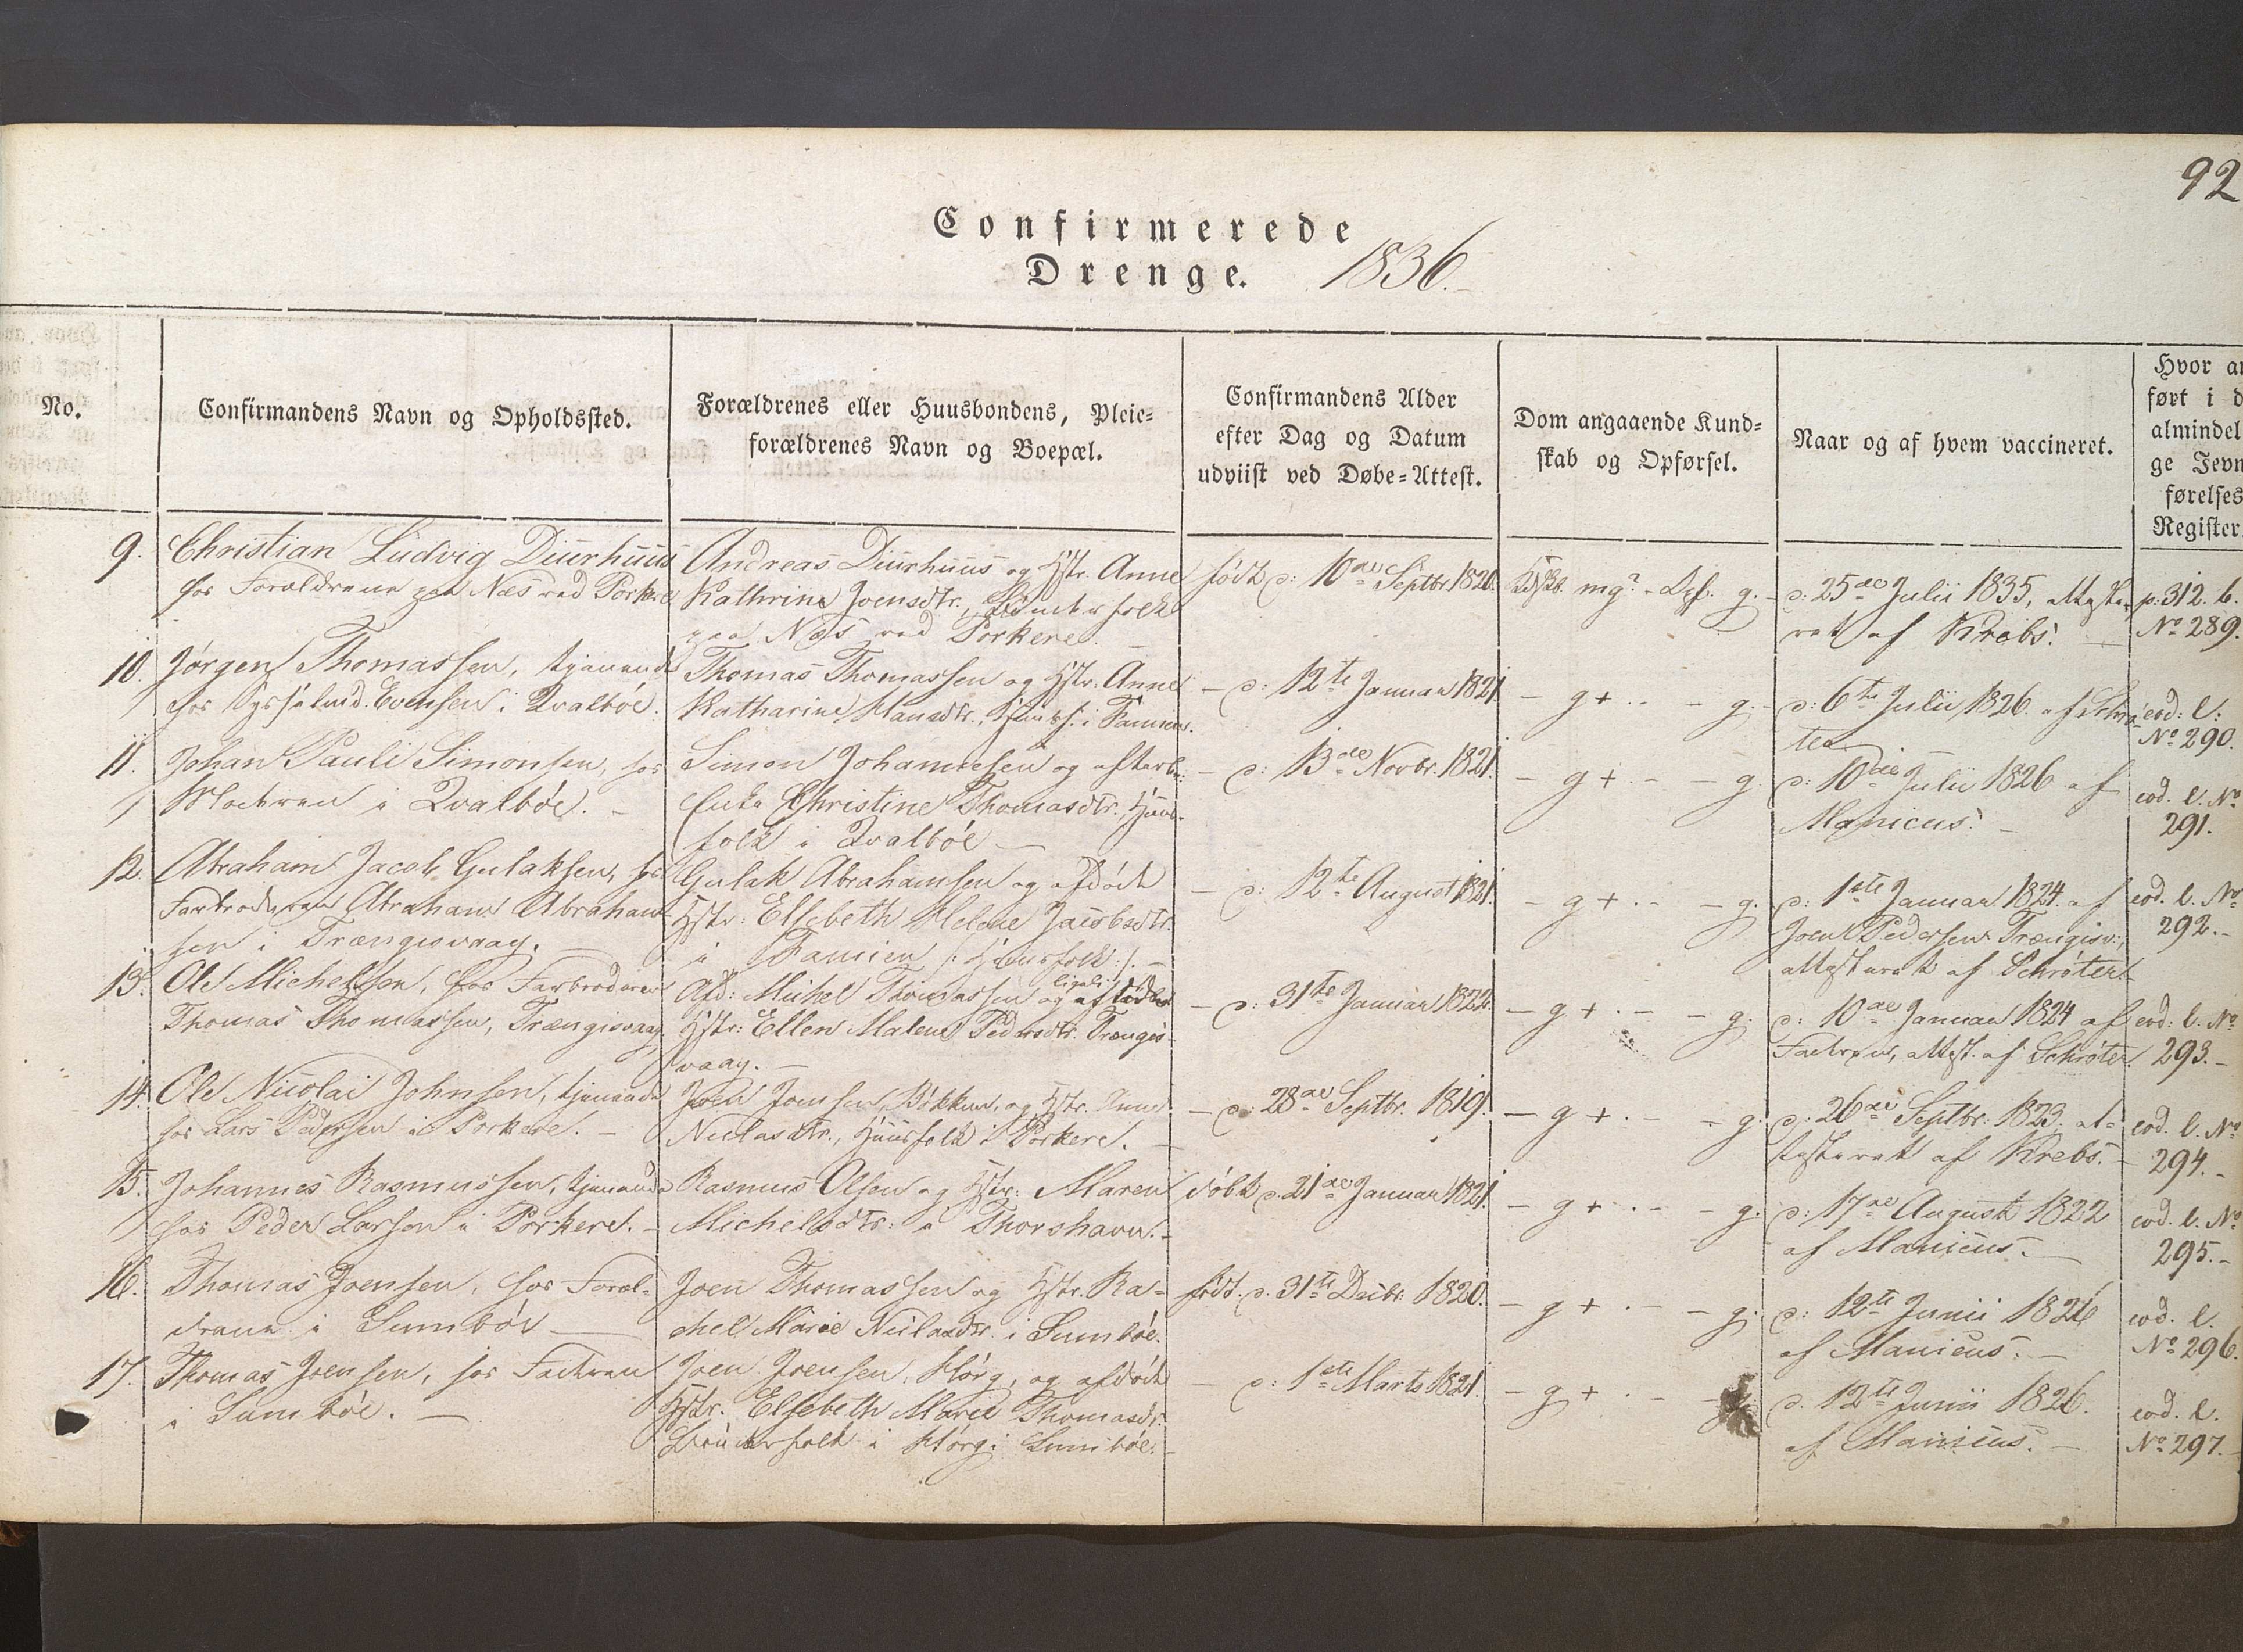 92
Confirmerede
Drenge. 1836.
No.
Confirmandens Navn og Opholdssted.
Forældrenes eller Huusbondens, Pleie-
forældrenes Navn og Boepæl.
Confirmandens Alder
efter Dag og Datum
udviist ved Døbe-Attest.
Dom angaaende Kund-
skab og Opførsel.
Naar og af hvem vaccineret.
Hvor an
ført i d
almindel
ge Jevn
førelses
Register.
9. Christian Ludvig Diurhuus
hos Forældrene paa Næs ved Porkere
Andreas Diurhuus og Hstr. Anne
Kathrine Joensdtr.,
paa Næs ved Porkere.
født d: 10de Septbr. 1820.
Kdsk. mg? - Opf. g.
d: 25de Julii 1835, atteste-
ret af Krebs.
p. 312. b.
No 289.
10. Jørgen Thomassen, tjenende
hos Sysselmd. Evensen i Qvalbøe.
Thomas Thomassen og Hstr. Anne
Katharine Hansdtr., i Famien.
- d: 12te Januar 1821
- g+ - - g.
d: 6te Julii 1826 af Schrø-
ter
eod: l:
No 290.
11. Johan Pauli Simonsen, hos
Moderen i Qvalbøe. -
Simon Johannesen og efterl.
Enke Christine Thomasdtr., Huus-
folk i Qvalbøe -
- d: 13de Novbr. 1821.
- g+ - - g.
d: 10de Julii 1826 af
Manicus. -
eod. l. No
291.
12. Abraham Jacob Gulaksen, hos
Farbroderen Abraham Abraham-
sen i Trængisvaag. -
Gulak Abrahamsen og afdøde
Hstr: Elsebeth Helene Jacobsdtr.
i Famien /: Huusfolk :/. -
- d: 12te August 1821.
- g+ - - g.
d: 1ste Januar 1824 af
Joen Pedersen Trængisv:,
attesteret af Schrøter
eod. l. No
292. -
13. Ole Michelsen, hos Farbroderen
Thomas Thomassen, Trængisvaag.
Afd: Michel Thomassen og ligel: afdøde
Hstr: Ellen Malene Pedersdtr. Trængis-
vaag. -
- d: 31te Januar 1822.
- g + - - g.
d: 10de Januar 1824 af
Faderen, attest. af Schrøter.
eod: l. No
293. -
14. Ole Nicolai Johnsen, tjenende
hos Lars Pedersen i Porkere. -
Joen Joensen, Bøkker, og Hstr. Anne
Niclasdtr., Huusfolk i Porkere. -
- d: 28de Septbr. 1819.
- g + - - g.
d: 26de Septbr. 1823. at-
testeret af Krebs. -
eod. l. No
294. -
15. Johannes Rasmussen, tjenende
hos Peder Larsen i Porkere. -
Rasmus Olsen og Hstr: Maren
Michelsdtr: i Thorshavn. -
døbt d. 21de Januar 1821.
- g + - - g.
d: 17de August 1822
af Manicus. -
eod. l. No
295. -
16. Thomas Joensen, hos Foræl-
drene i Sumbøe -
Joen Thomassen og Hstr. Ra-
chel Marie Niclasdtr. i Sumbøe.
født. d. 31te Decbr. 1820.
- g + - - g.
d: 12te Junii 1826
af Manicus. -
eod. l.
No 296.
17. Thomas Joensen, hos Faderen
i Sumbøe. -
Joen Joensen, Hørg, og afdøde
Hstr. Elsebeth Marie Thomasdr.
i Hørg i Sumbøe. -
- d: 1ste Marts 1821.
- g + -
d. 12te Junii 1826.
af Manicus. -
eod. l.
No 297. -